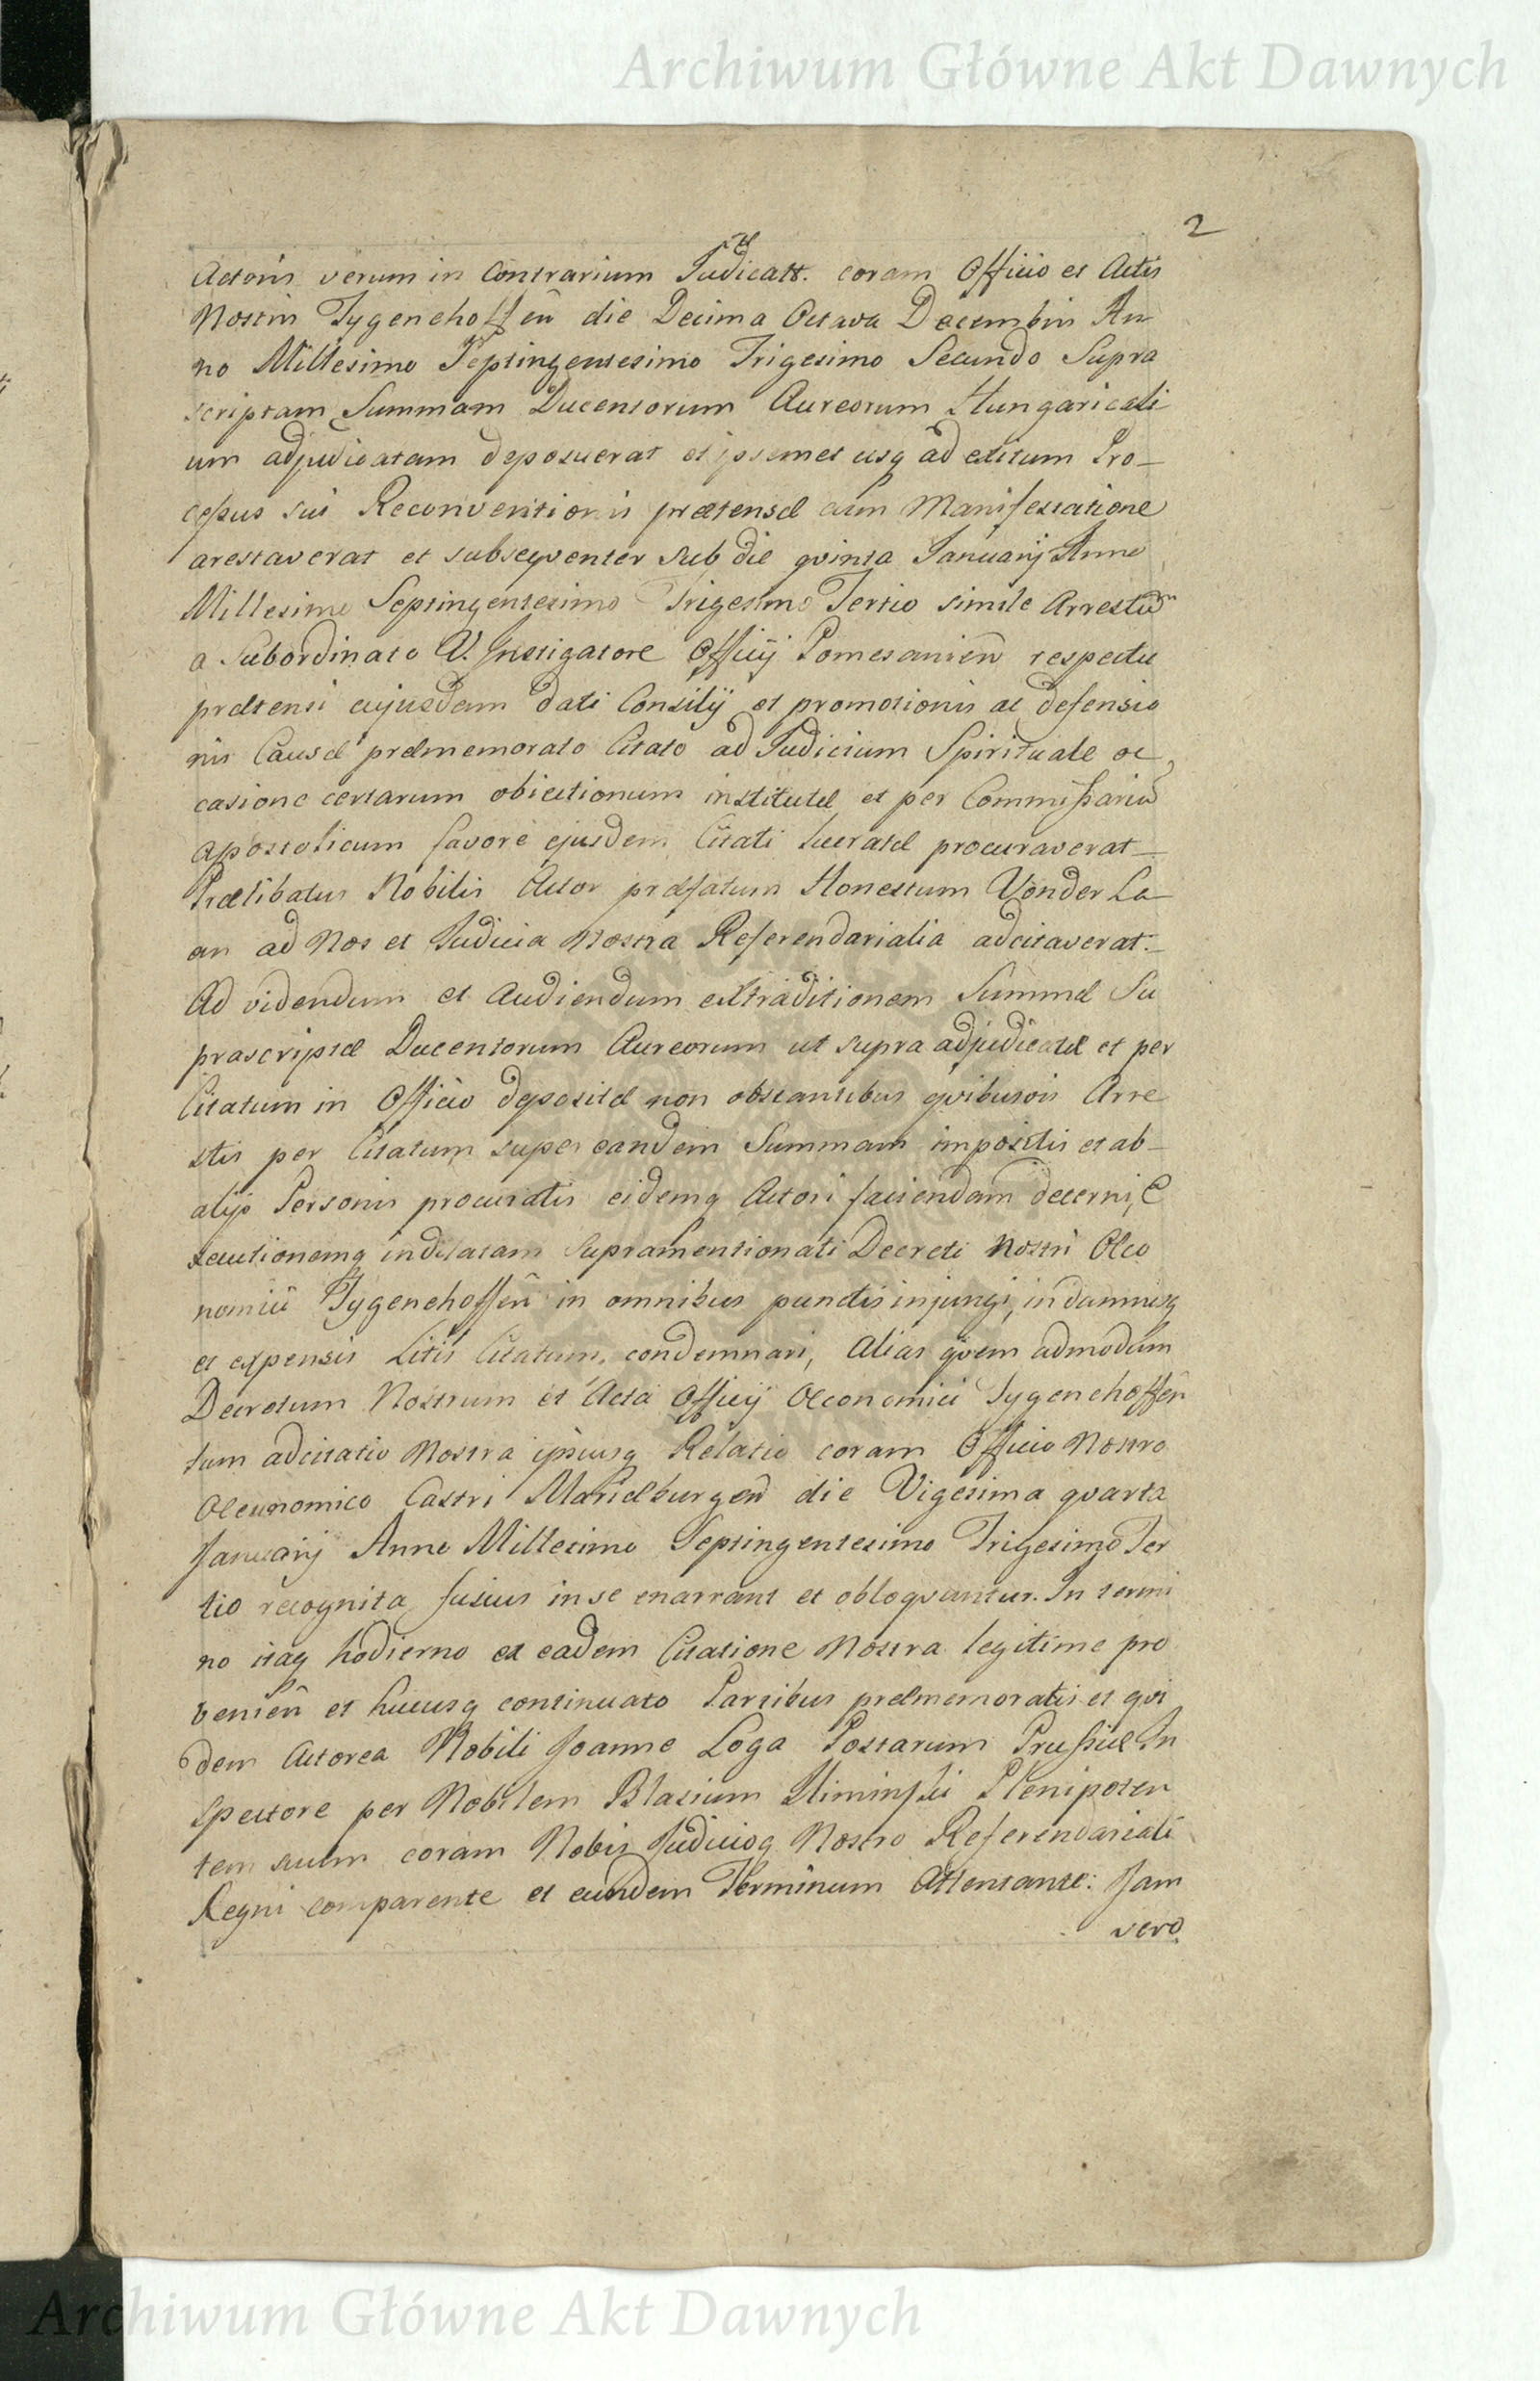 Archiwum Główne Akt Dawnych
2
Actoris verum in Contrarium Judicatt. coram Officio et Actis
Nostris Tygenehoffeñ die Decima Octava Decembris An
no Millesimo Septingentesimo Trigesimo Secundo Supra
scriptam Summam Ducentorum Aureorum Hungaricali
um adjudicatam deposuerat et ipsemet usq ad exitum Pro-
cessus sui Reconventionis prætensæ cum Manifestatione
arestaverat et subseqventer sub die qvinta Januarij Anno
Millesimo Septingentesimo Trigesimo Tertio simile Arrestũ
a Subordinato V. Instigatore Officij Pomesanieñ respectu
prætensi cujusdam dati Consilij et promotionis ac defensio
nis Causæ præmemorato Citato ad Judicium Spirituale oc
casione certarum obiectionum institutæ et per Commissariũ
Apostolicum favore ejusdem Citati lucratæ procuraverat
Prælibatus Nobilis Actor præfatum Honestum Vonder La
an ad Nos et Judicia Nostra Referendarialia adcitaverat.
Ad videndum et Audiendum extraditionem Summæ Su
prascriptæ Ducentorum Aureorum ut supra adjudicatæ et per
Citatum in Officio depositæ non obstantibus qvibusvis Arre
stis per Citatum super eandem Summam impositis et ab
alijs Personis procuratis eidemq Actori faciendam decerni, E
xecutionemq indilatam supramentionati Decreti Nostri Oeco
nomici Tygenehoffeñ in omnibus punctis injungi, in damnisq
et expensis Litis Citatum condemnari, Alias qvem admodum
Decretum Nostrum et Acta Officij Oeconomici Tygenehoffeñ
tum adcitatio Nostra ipsiusq Relatio coram Officio Nostro
Oeconomico Castri Mariæburgeñ die Vigesima qvarta
Januarij Anno Millesimo Septingentesimo Trigesimo Ter
tio recognita fusius in se enarrant et obloqvuntur. In termi
no itaq hodierno ex eadem Citatione Nostra legitime pro
venieñ et hucusq continuato Partibus præmemoratis et qvi
dem Actorea Nobili Joanne Loga Postarum Prussiæ In
spectore per Nobilem Blasium Kliminski Plenipoten
tem suum coram Nobis Judicioq Nostro Referendariali
Regni comparente et eundem Terminum Attentante: Jam
vero
Archiwum Główne Akt Dawnych